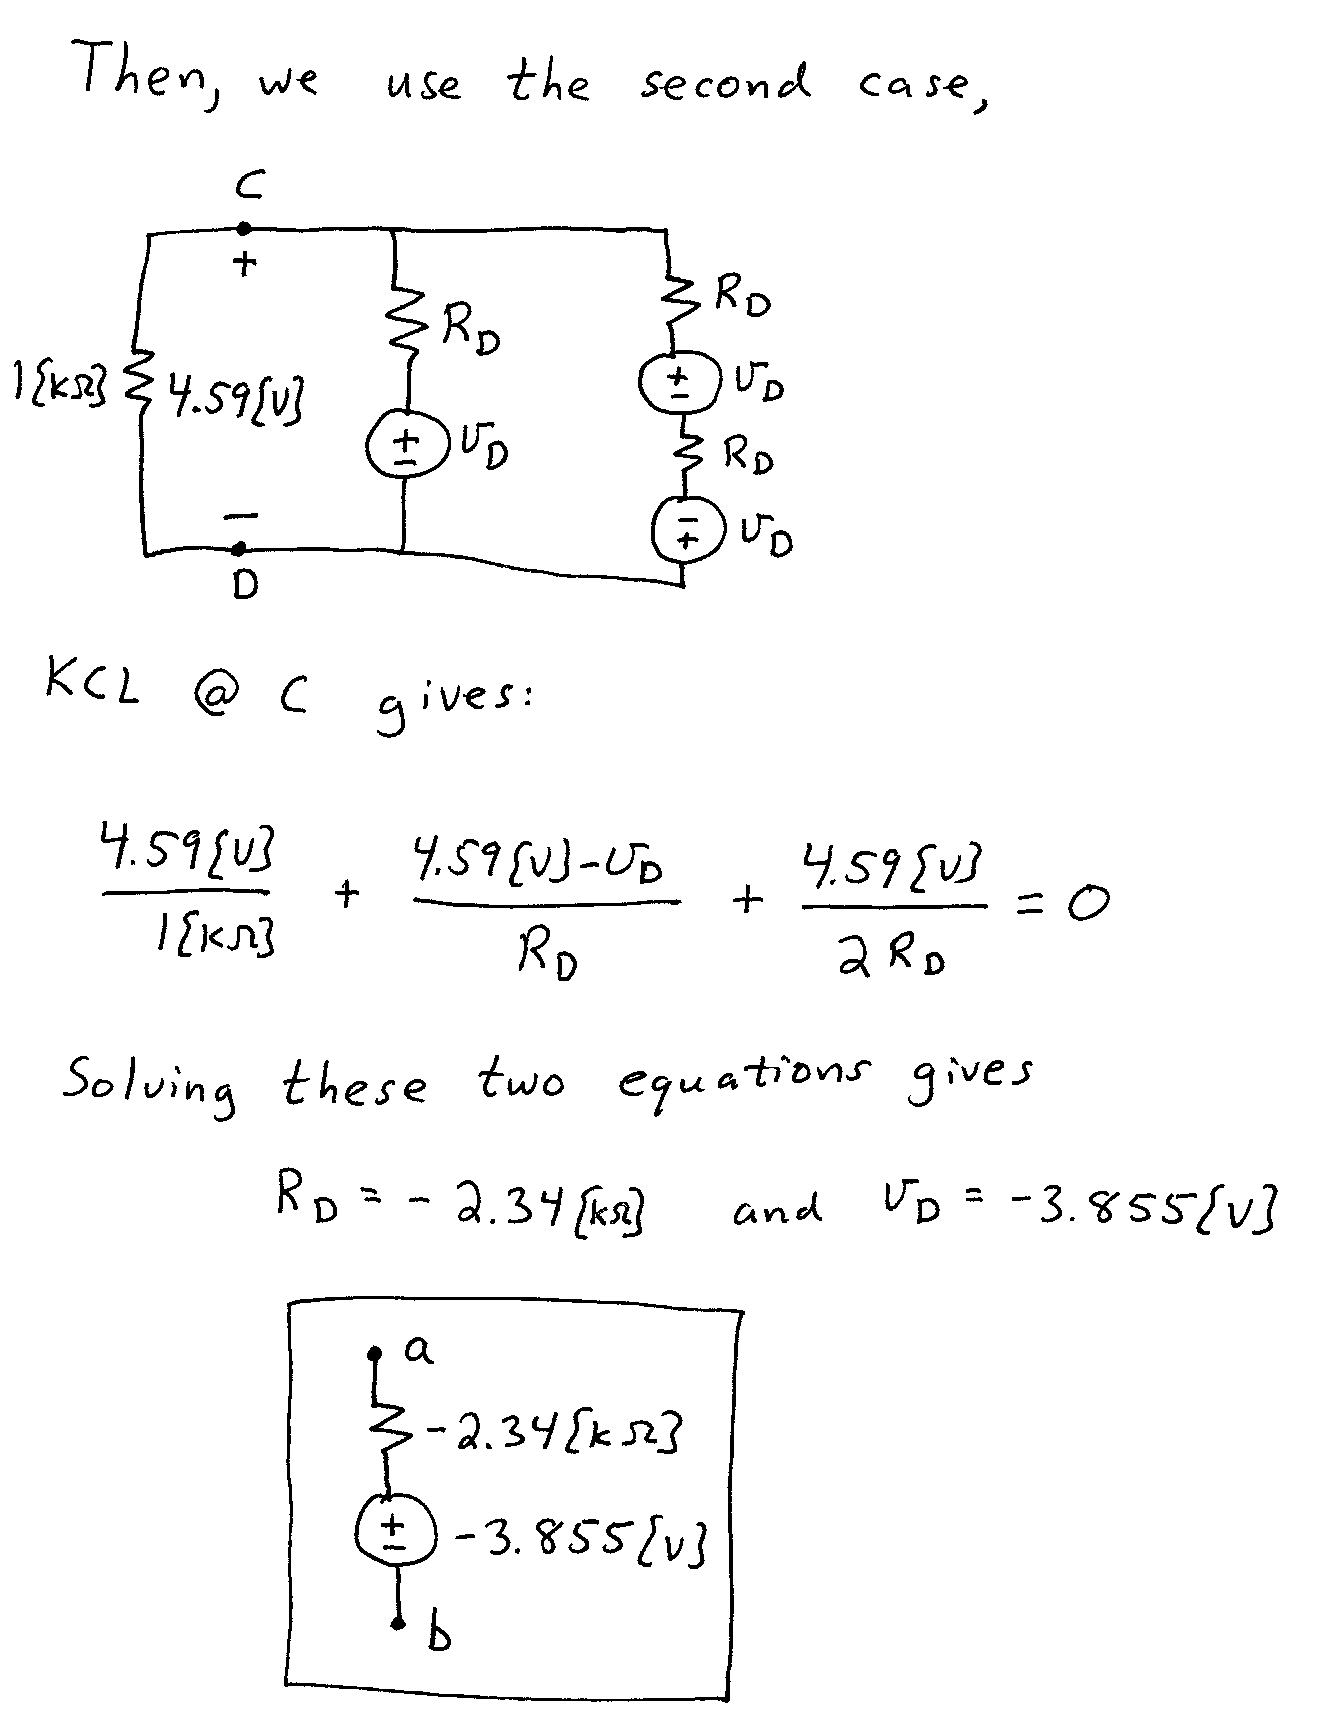 Then, we use the second case,
C
+
R_D
R_D
1{kΩ}
4.59{V}
+
-
v_D
+
-
v_D
R_D
-
+
v_D
-
D
KCL @ C gives:
4.59{V} / 1{kΩ} + 4.59{V}-v_D / R_D + 4.59{V} / 2R_D = 0
Solving these two equations gives
R_D = -2.34{kΩ} and v_D = -3.855{V}
a
-2.34{kΩ}
+
-
-3.855{V}
b